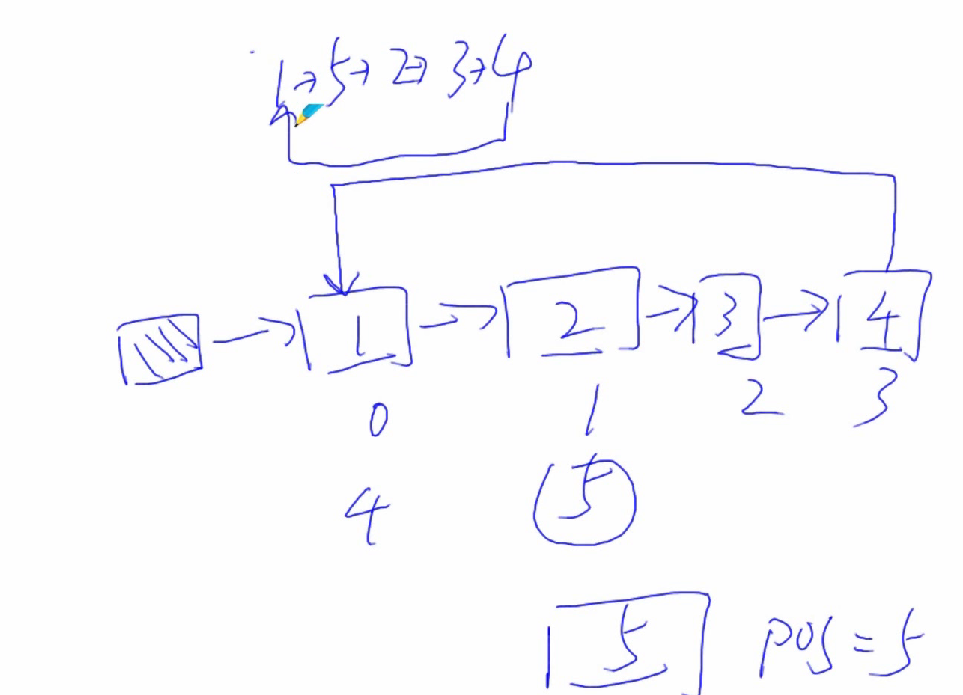 1→5→2→3→4
1 2 3 4
0 1 2 3
4 5
5 pos=5